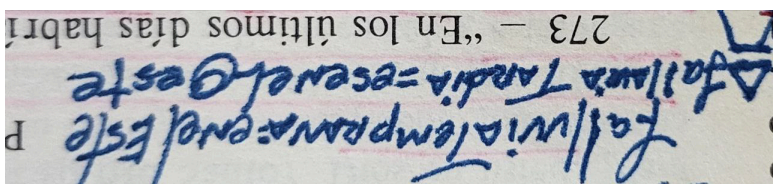 La lluvia Temprana=en el Este P
la lluvia Tardia=es en el Oeste
273 – “En los últimos días habrí